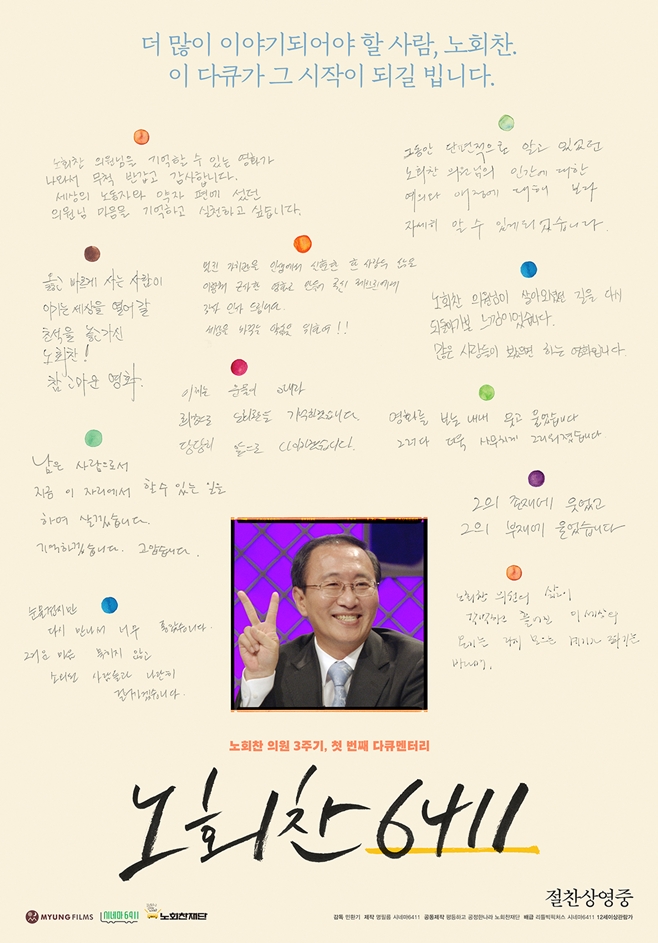 더 많이 이야기되어야 할 사람, 노회찬.
이 다큐가 그 시작이 되길 빕니다.
노회찬 의원님을 기억할 수 있는 영화가
나와서 무척 반갑고 감사합니다.
세상의 노동자와 약자 편에 섰던
의원님 마음을 기억하고 실천하고 싶습니다.
그동안 단편적으로 알고 있었던
노회찬 의원님의 인간에 대한
예의와 애정에 대해 보다
자세히 알 수 있게되었습니다.
옳고 바르게 사는 사람이
이기는 세상을 열어갈
초석을 놓으신
노회찬!
참 고마운 영화.
감사 인사 드립니다.
노회찬 의원님이 살아오셨던 길을 다시
되돌아가본 느낌이었습니다.
많은 사람들이 봤으면 하는 영화입니다.
이제는 눈물이 아니라
노회찬을 기억하겠습니다.
당당히 앞으로 나아가겠습니다.
영화를 보는 내내 웃고 울었습니다
그리다 더욱 사무치게 그리워졌습니다
남은 사람으로서
지금 이 자리에서 할 수 있는 일을
하며 살겠습니다.
기억하겠습니다. 고맙습니다.
그의 존재에 웃었고
그의 부재에 울었습니다
다시 만나서 너무 좋았습니다.
그리운 마음 묶이지 않고
소외된 사람들과 나란히
걸어가겠습니다.
노회찬 의원의 삶이
노회찬 의원 3주기, 첫 번째 다큐멘터리
노회찬 6411
절찬상영중
MYUNG FILMS 시네마 6411 노회찬재단
감독 민환기 제작 명필름 시네마6411 공동제작 평등하고 공정한나라 노회찬재단 배급 리틀빅픽처스 시네마6411 12세이상관람가